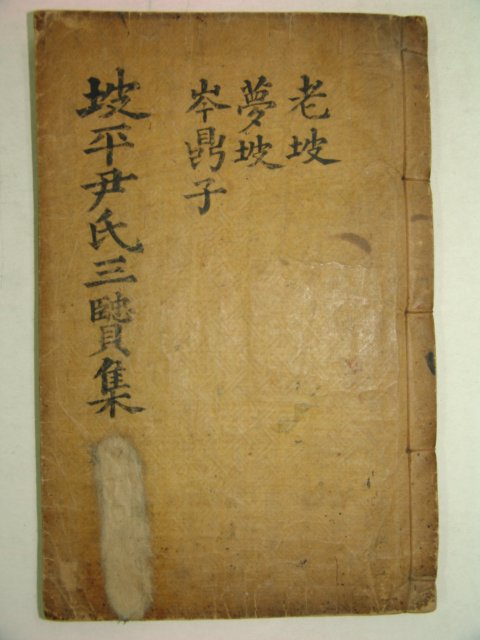 老坡
夢坡
岑鼎子
坡平尹氏三贒集